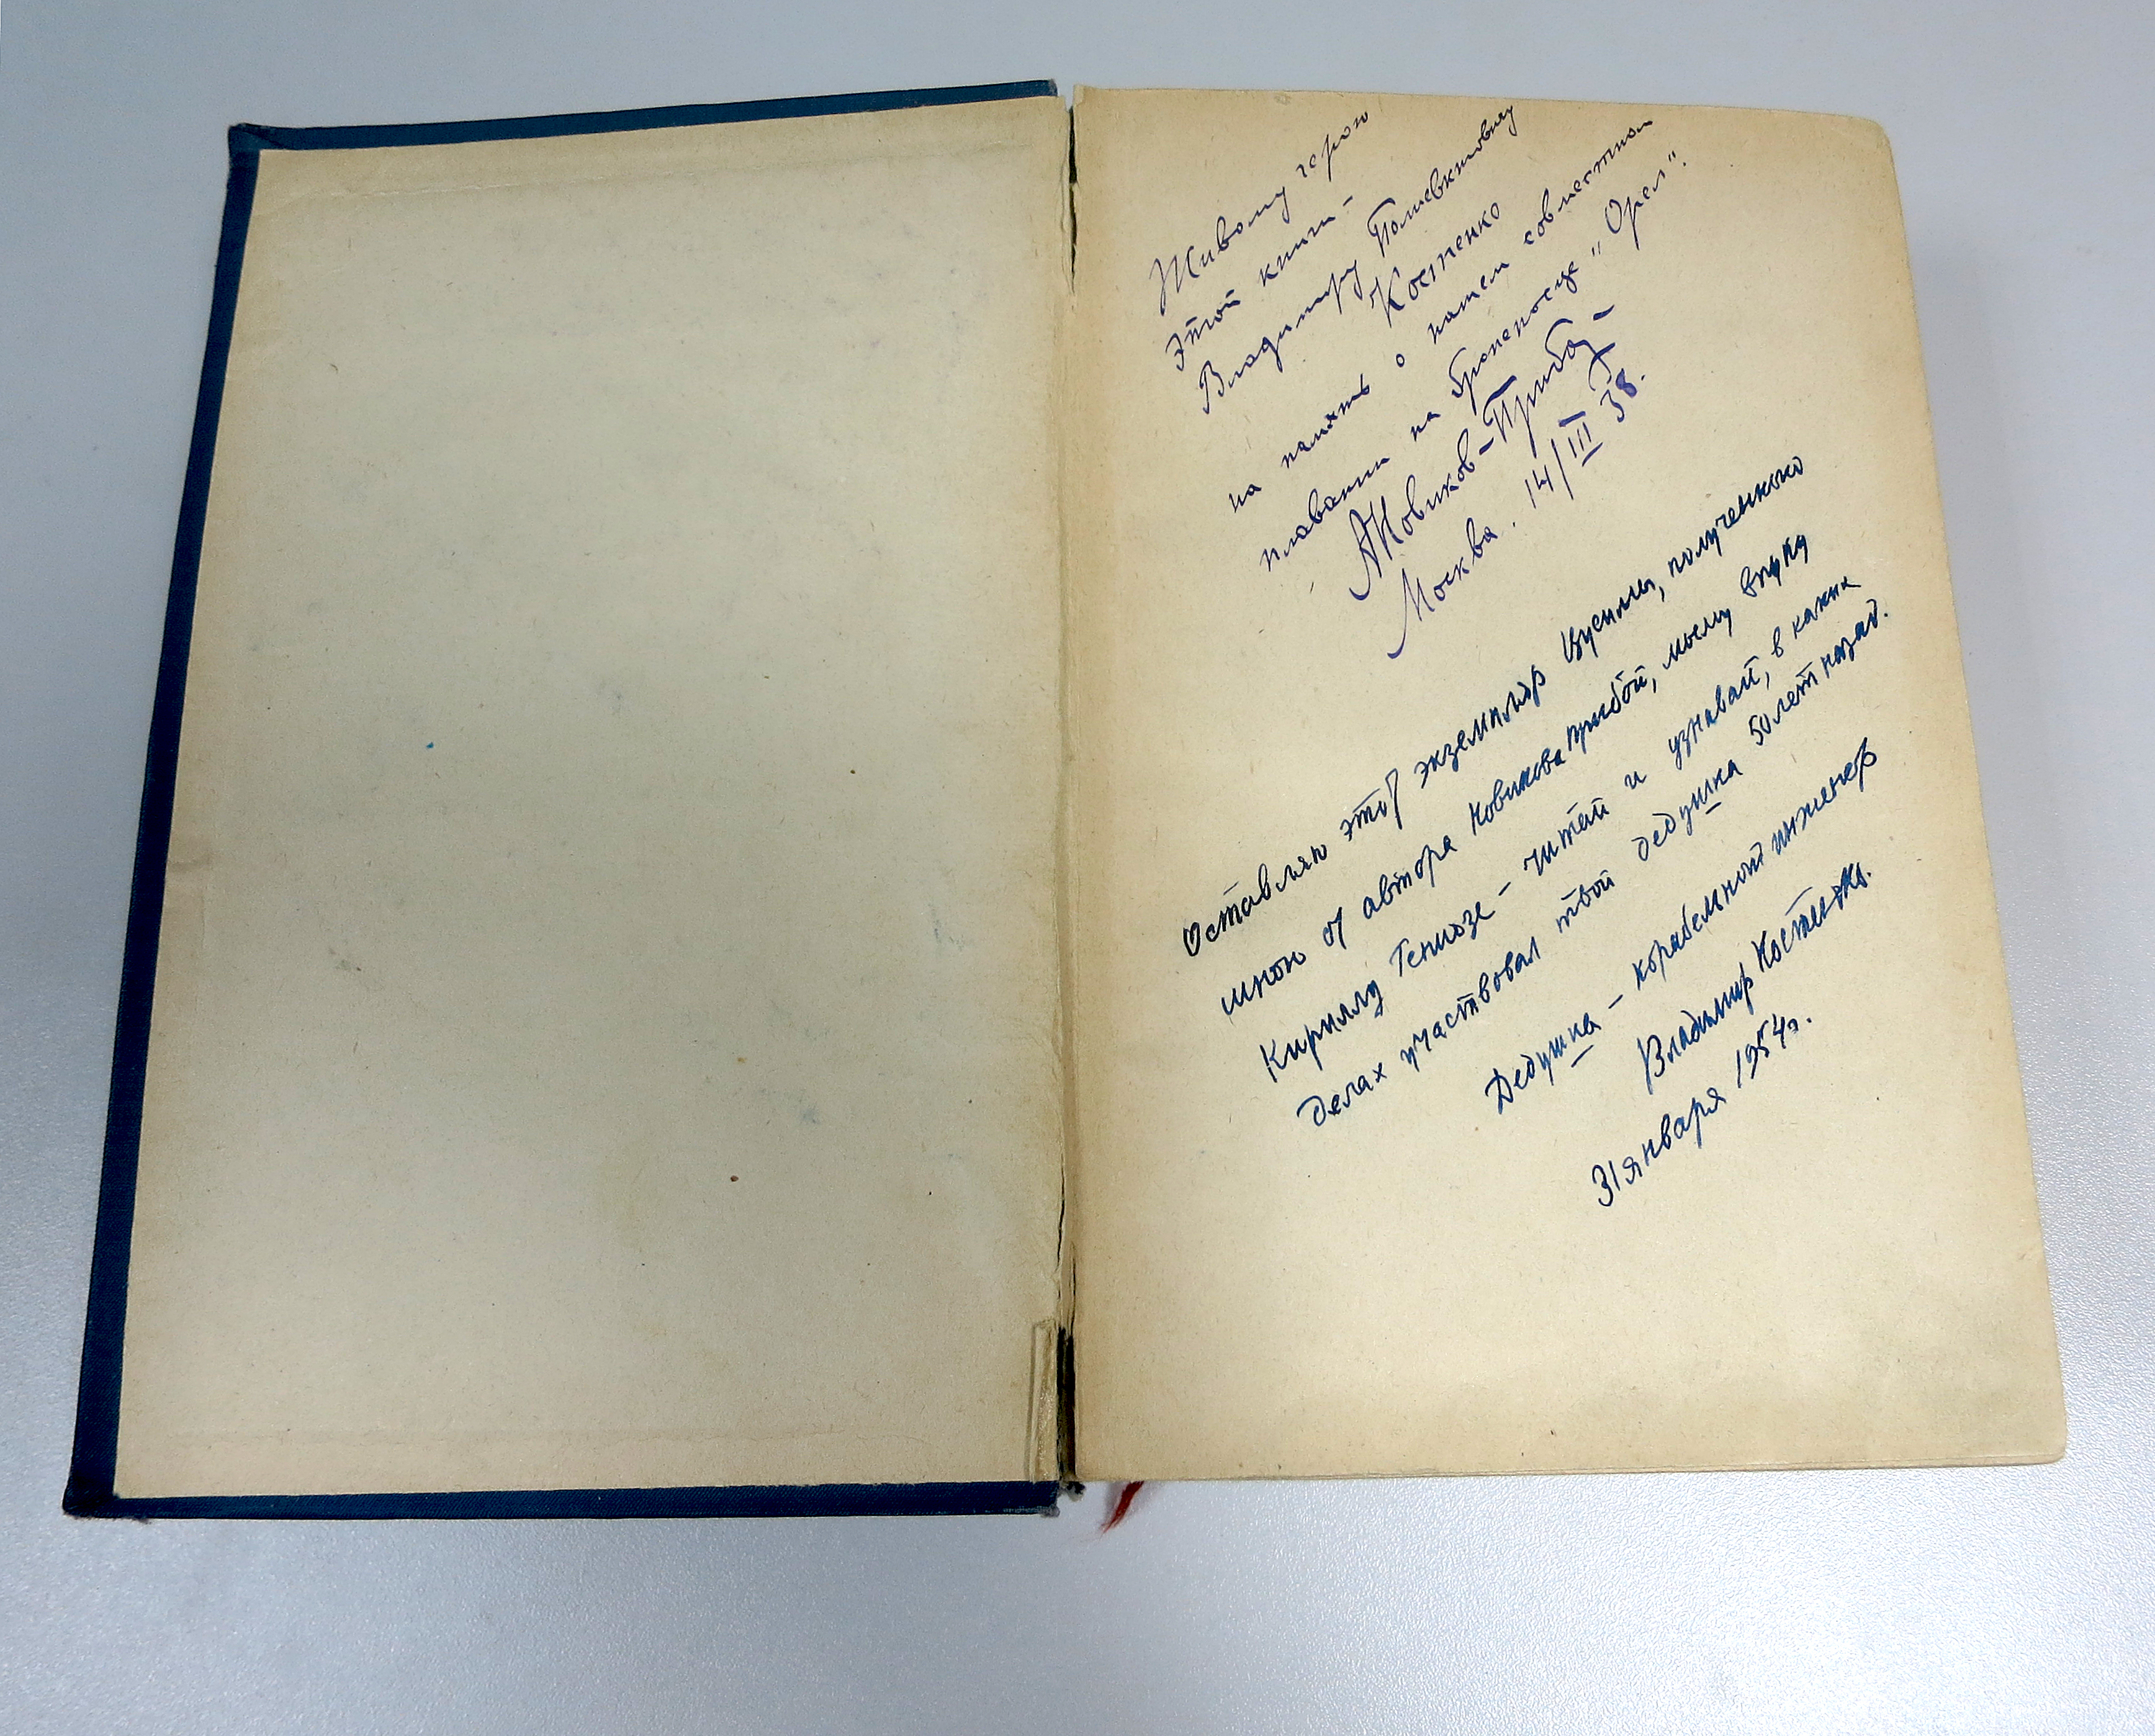 Живому герою
этой книги –
Владимиру Полиевктовичу
Костенко
на память о нашем совместном
плавании на броненосце „Орел".
А Новиков-Прибой
Москва. 14/III 38.
Оставляю этот экземпляр Цусимы, полученную
мною от автора Новикова Прибой, моему внуку
Кириллу – читай и узнавай, в каких
делах участвовал твой дедушка 50 лет назад.
Дедушка – корабельный инженер
Владимир Костенко.
31 января 1954 г.